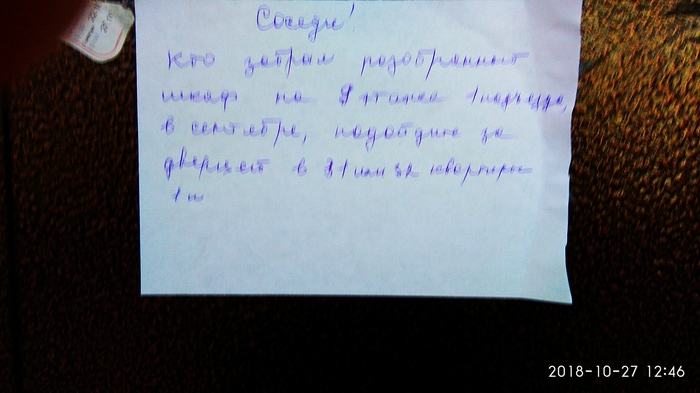 Соседи!
Кто забрал разобранный
шкаф на 8 этаже 1 подъезда,
в сентябре, подойдите за
дверцей в 31 или 32 квартиры
1 п
2018-10-27 12:46